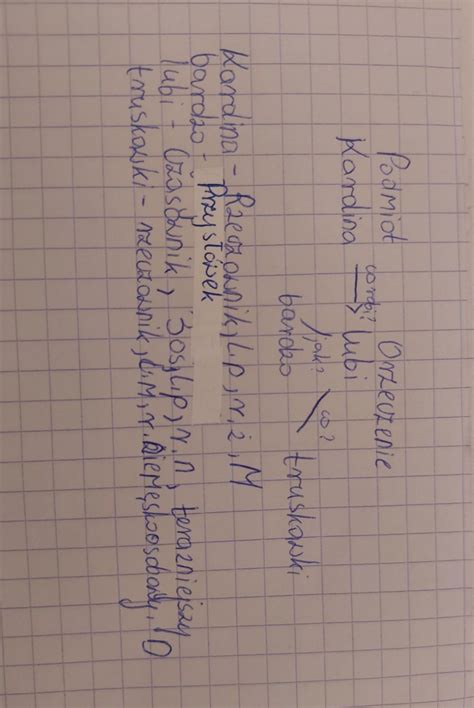 Podmiot Orzeczenie
Karolina co robi? lubi
jak? co?
bardzo truskawki
Karolina - Rzeczownik, l.p, r, ż, M
bardzo - Przysłówek
lubi - Czasownik, 3os, l.p, r. n, teraźniejszy
truskawki - rzeczownik, l.M, r. niemęskoosobowy, D